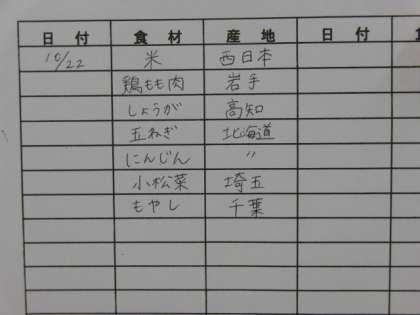 日付 食材 産地 日付
10/22 米 西日本
鶏もも肉 岩手
しょうが 高知
玉ねぎ 北海道
にんじん 〃
小松菜 埼玉
もやし 千葉